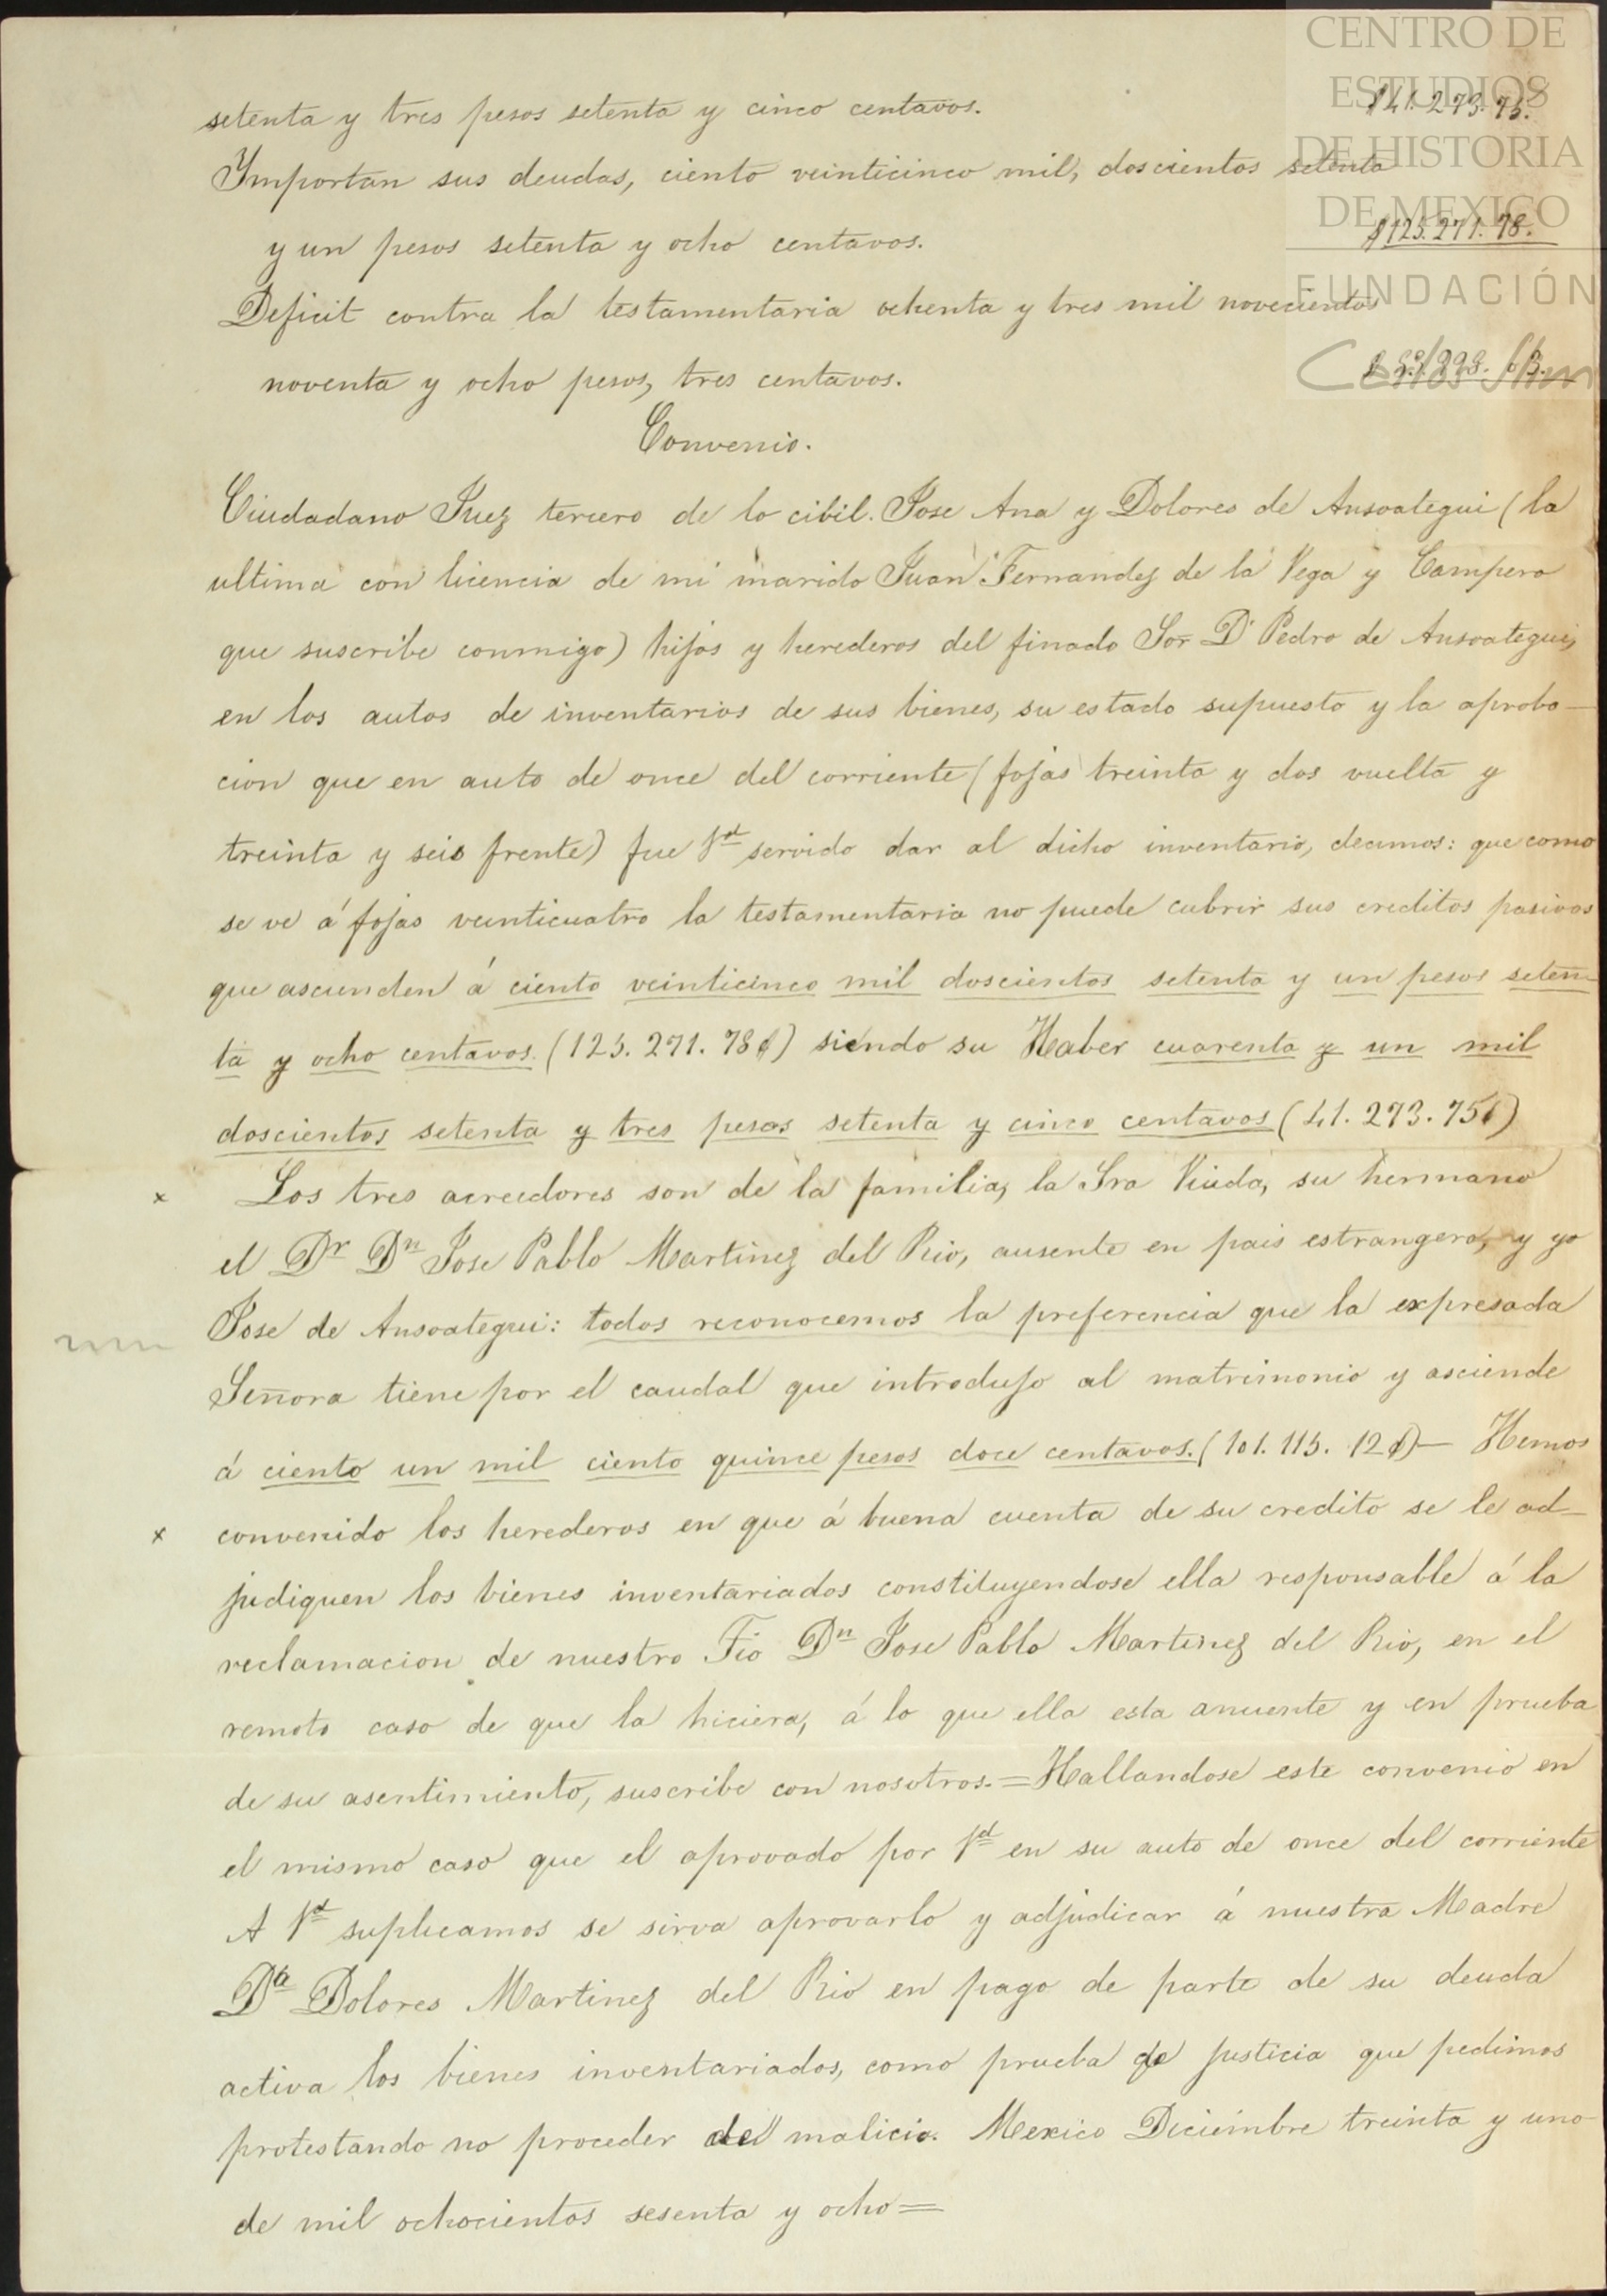 CENTRO DE
ESTUDIOS
DE HISTORIA
DE MEXICO
FUNDACIÓN
Carlos Slim
setenta y tres pesos setenta y cinco centavos. $41.273.75.
Ymportan sus deudas, ciento veinticinco mil, doscientos setenta
y un pesos setenta y ocho centavos. $125.271.78.
Deficit contra la testamentaria ochenta y tres mil novecientos
noventa y ocho pesos, tres centavos.
Convenio.
Ciudadano Juez tercero de lo cibil. Jose Ana y Dolores de Ansoategui (la
ultima con licencia de mi marido Juan Fernandez de la Vega y Campero
que suscribe conmigo) hijos y herederos del finado Sor D. Pedro de Ansoategui,
en los autos de inventarios de sus bienes, su estado supuesto y la aproba-
cion que en auto de once del corriente (fojas treinta y dos vuelta y
treinta y seis frente) fue Vd servido dar al dicho inventario, decimos: que como
se ve á fojas veinticuatro la testamentaria no puede cubrir sus creditos pasivos
que ascienden á ciento veinticinco mil doscientos setenta y un pesos seten-
ta y ocho centavos. (125.271.78¢) siendo su Haber cuarenta y un mil
doscientos setenta y tres pesos setenta y cinco centavos (41.273.75¢)
x Los tres acreedores son de la familia, la Sra Viuda, su hermano
el Dr Dn Jose Pablo Martinez del Rio, ausente en pais estrangero, y yo
Jose de Ansoategui: todos reconocemos la preferencia que la expresada
Señora tiene por el caudal que introdujo al matrimonio y asciende
á ciento un mil ciento quince pesos doce centavos. (101.115.12¢)— Hemos
x convenido los herederos en que á buena cuenta de su credito se le ad-
judiquen los bienes inventariados constituyendose ella responsable á la
reclamacion de nuestro Tio Dn Jose Pablo Martinez del Rio, en el
remoto caso de que la hiciera, á lo que ella esta anuente y en prueba
de su asentimiento, suscribe con nosotros.=Hallandose este convenio en
el mismo caso que el aprovado por Vd en su auto de once del corriente
A Vd suplicamos se sirva aprovarlo y adjudicar á nuestra Madre
Da Dolores Martinez del Rio en pago de parte de su deuda
activa los bienes inventariados, como prueba de justicia que pedimos
protestando no proceder de malicia. Mexico Diciembre treinta y uno
de mil ochocientos sesenta y ocho=